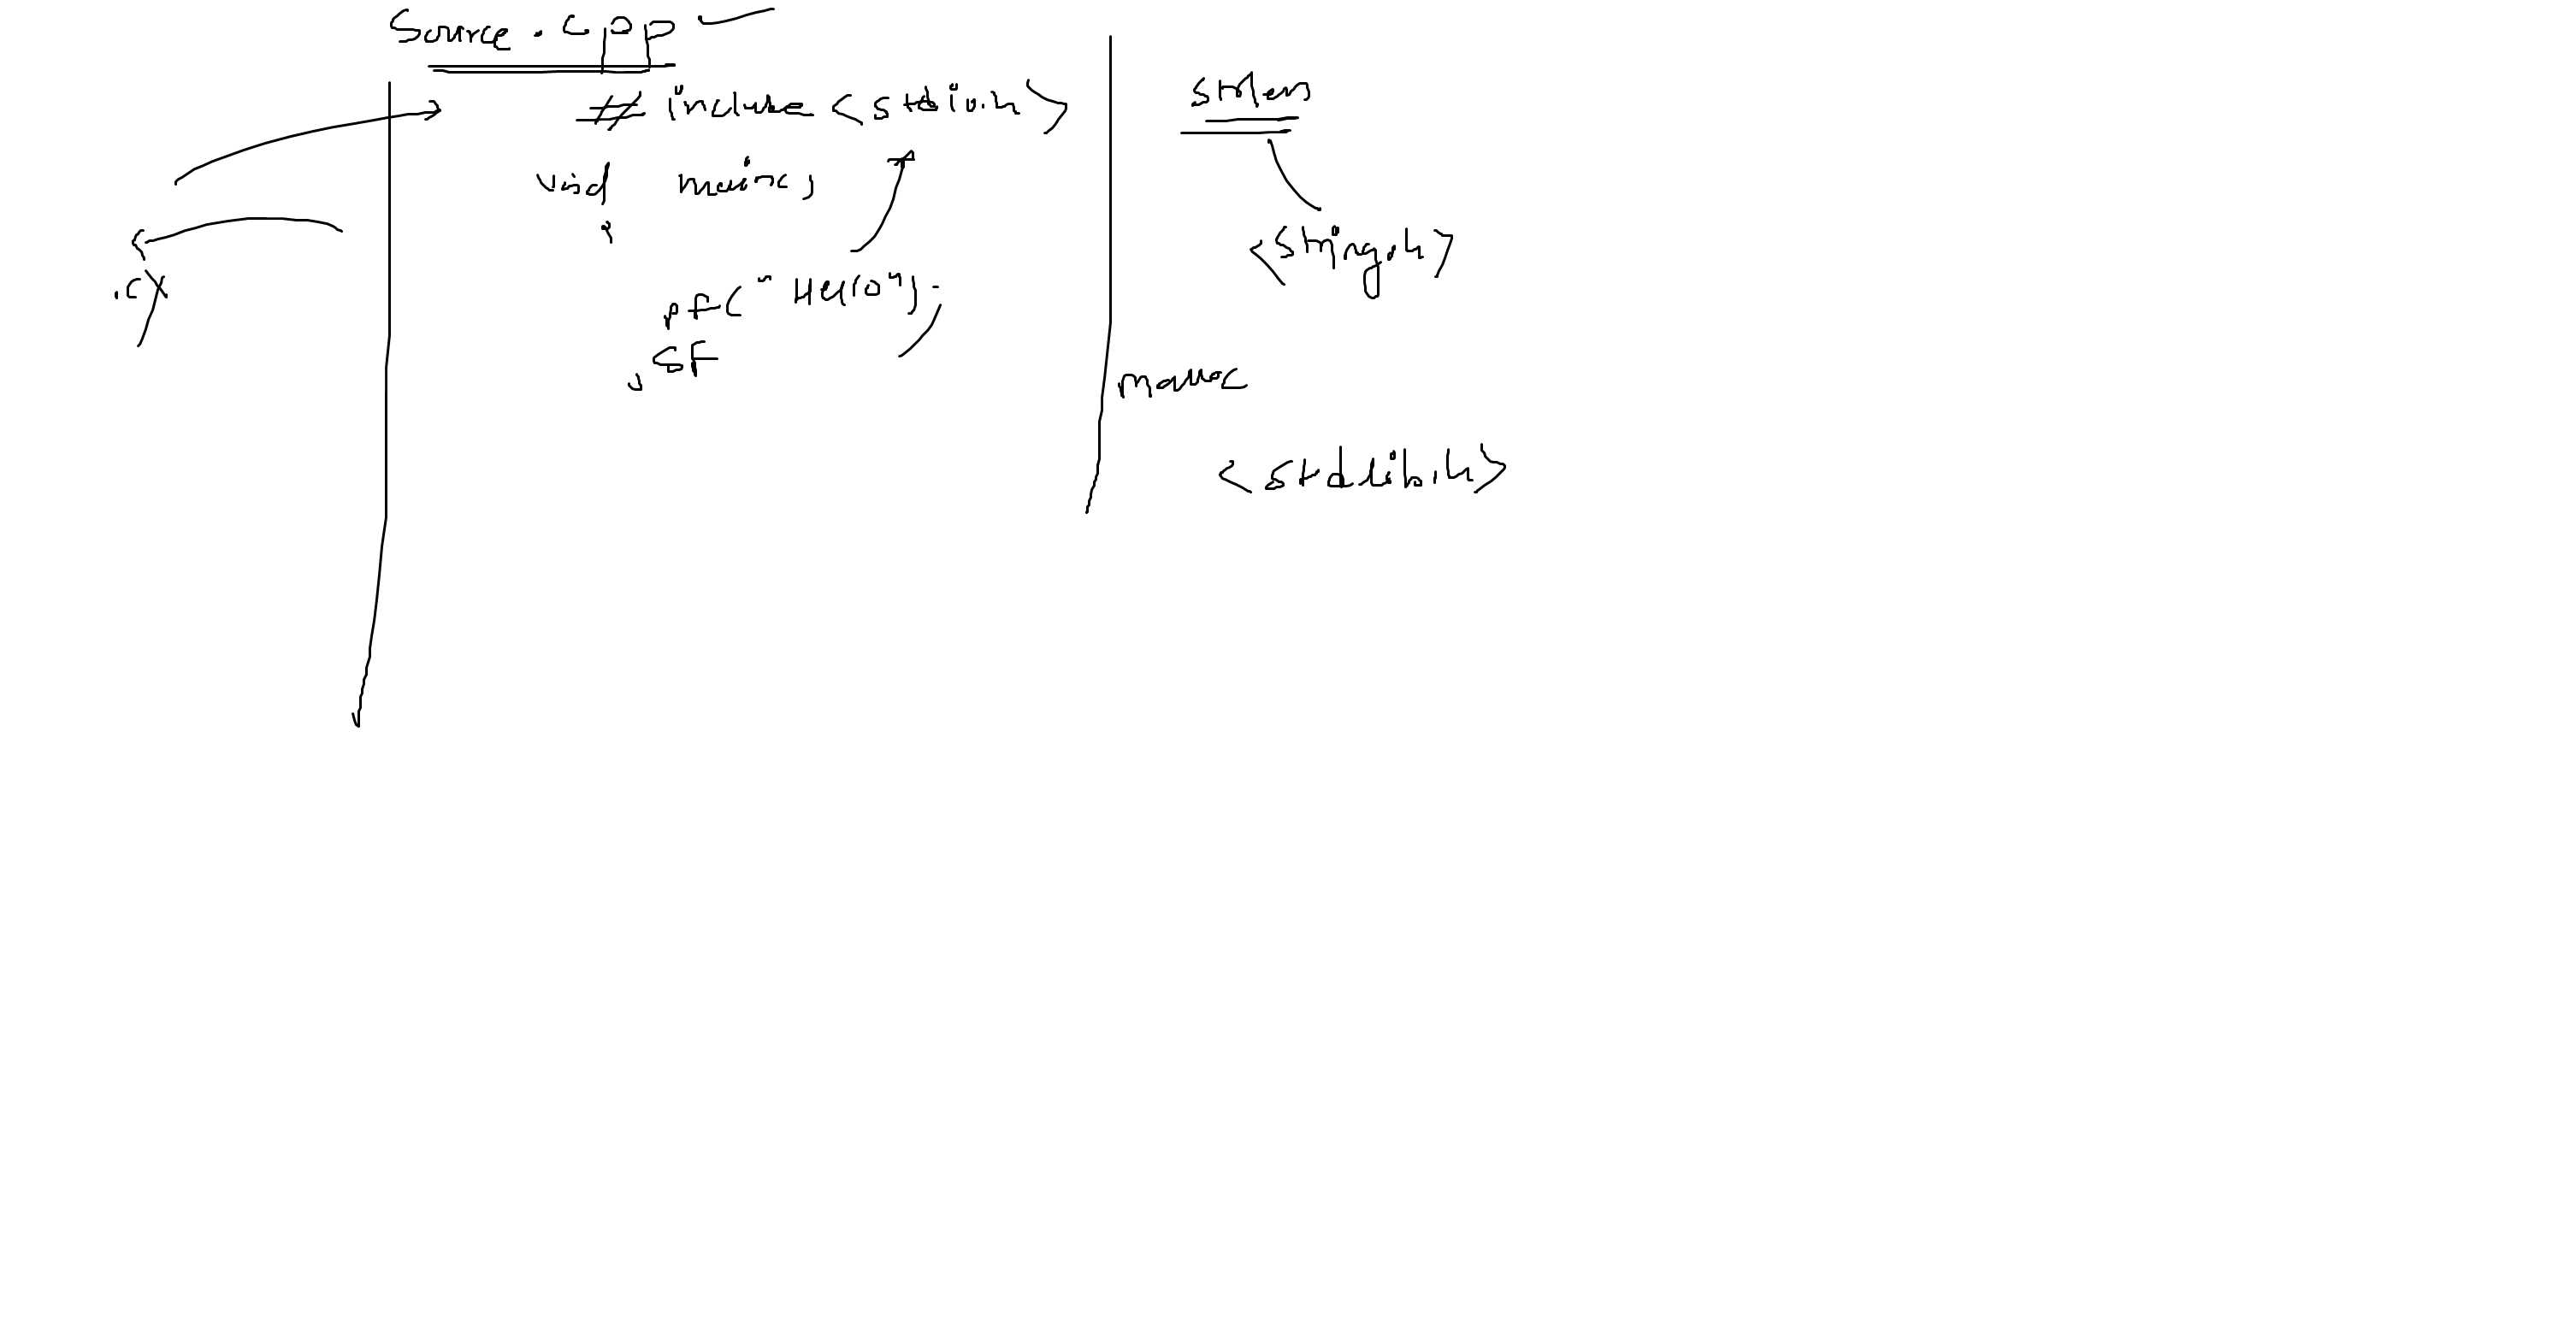 Source.cpp
# include <stdio.h>
void main()
pf("Hello");
SF
.cX
strlen
<string.h>
malloc
<stdlib.h>